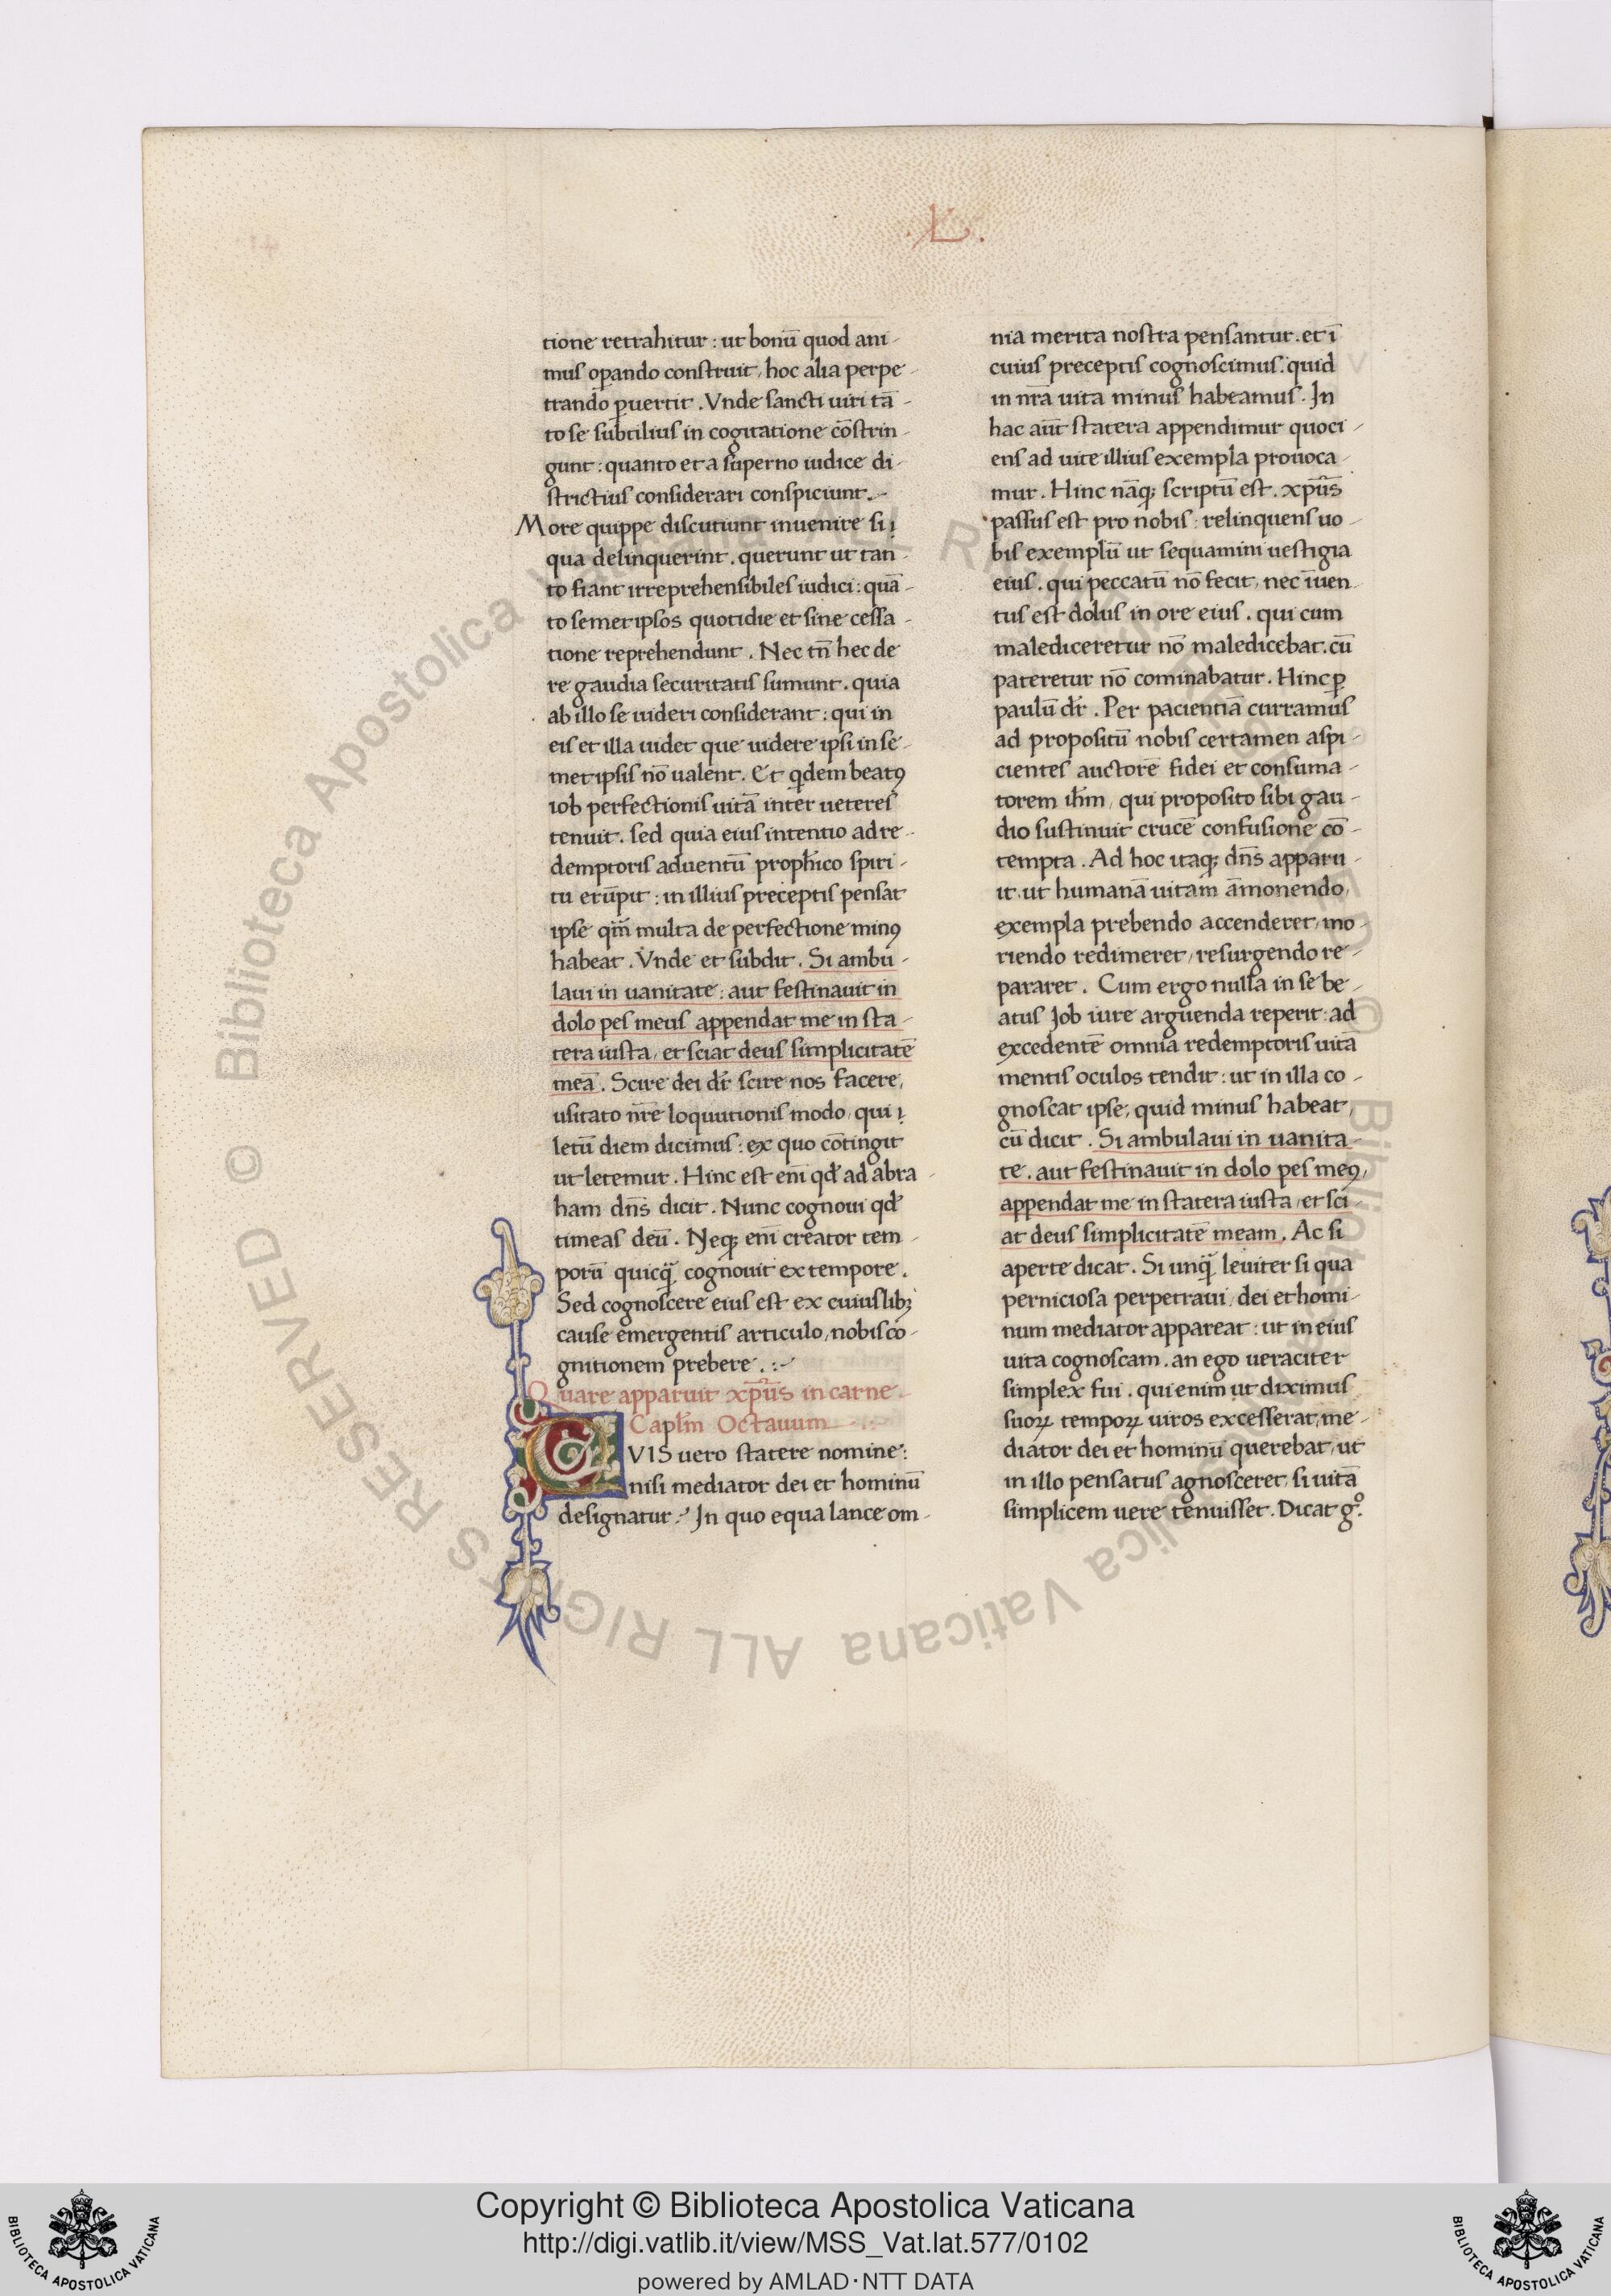 .L.
tione retrahitur : ut bonū quod ani-
mus opando construit, hoc alia perpe-
trando puertit . Vnde sancti uiri tā-
to se subtilius in cogitatione cōstrin-
gunt : quanto et a superno iudice di-
strictius considerari conspiciunt .-
More quippe discutiunt inuenire si
qua delinquerint . querunt ut tan-
to fiant irreprehensibiles iudici : quā-
to semetipsos quotidie et sine cessa-
tione reprehendunt . Nec tn̄ hec de
re gaudia securitatis sumunt . quia
ab illo se uideri considerant : qui in
eis et illa uidet que uidere ipsi in se-
metipsis nō ualent . Et qdem beatꝯ
iob perfectionis uitā inter ueteres
tenuit . sed quia eius intentio ad re-
demptoris aduentū prophico spiri-
tu erūpit : in illius preceptis pensat
ipse qm̄ multa de perfectione minꝯ
habeat . Vnde et subdit . Si ambu-
laui in uanitate : aut festinauit in
dolo pes meus appendat me in sta-
tera iusta, et sciat deus simplicitatē
meā . Scire dei dr̄ scire nos facere,
usitato nr̄e loquutionis modo, qui
letū diem dicimus : ex quo cōtingit
ut letemur . Hinc est eni̅ qd̛ ad abra-
ham dn̄s dicit . Nunc cognoui qd̛
timeas deū . Neqꝫ eni̅ creator tem-
porū quicq̄ cognouit ex tempore .
Sed cognoscere eius est ex cuiuslibꝫ
cause emergentis articulo, nobis co-
gnitionem prebere . :~
Quare apparuit xp̄us in carne .-
Caplm Octauum
CVIS uero statere nomine :
nisi mediator dei et hominū
designatur .' In quo equa lance om-
nia merita nostra pensantur . et ī
cuius preceptis cognoscimus : quid
in nr̄a uita minus habeamus . In
hac aūt statera appendimur quoci-
ens ad uite illius exempla prouoca-
mur . Hinc nāqꝫ scriptū est . xp̄us
passus est pro nobis : relinquens uo-
bis exemplū ut sequamini uestigia
eius . qui peccatū nō fecit, nec īuen-
tus est dolus in ore eius . qui cum
malediceretur nō maledicebat . cū
pateretur nō cominabatur . Hinc ꝑ
paulū dr̄ . Per pacientiā curramus
ad propositū nobis certamen aspi-
cientes auctorē fidei et consuma-
torem ih̄m, qui proposito sibi gau-
dio sustinuit crucē confusione cō-
tempta . Ad hoc itaqꝫ dn̄s apparu-
it, ut humanā uitam āmonendo,
exempla prebendo accenderet, mo-
riendo redimeret, resurgendo re-
pararet . Cum ergo nulla in se be-
atus Job iure arguenda reperit : ad
excedentē omnia redemptoris uitā
mentis oculos tendit : ut in illa co-
gnoscat ipse, quid minus habeat,
cū dicit . Si ambulaui in uanita-
te . aut festinauit in dolo pes meꝯ,
appendat me in statera iusta, et sci-
at deus simplicitatē meam . Ac si
aperte dicat . Si unq̄ leuiter si qua
perniciosa perpetraui, dei et homi-
num mediator appareat : ut in eius
uita cognoscam . an ego ueraciter
simplex fui . qui enim ut diximus
suoꝝ tempoꝝ uiros excesserat, me-
diator dei et hominū querebat, ut
in illo pensatus agnosceret, si uitā
simplicem uere tenuisset . Dicat gº.
© Biblioteca Apostolica Vaticana ALL RIGHTS RESERVED © Biblioteca Apostolica Vaticana ALL RIGHTS RESERVED
BIBLIOTECA APOSTOLICA VATICANA
Copyright © Biblioteca Apostolica Vaticana
http://digi.vatlib.it/view/MSS_Vat.lat.577/0102
powered by AMLAD·NTT DATA
BIBLIOTECA APOSTOLICA VATICANA